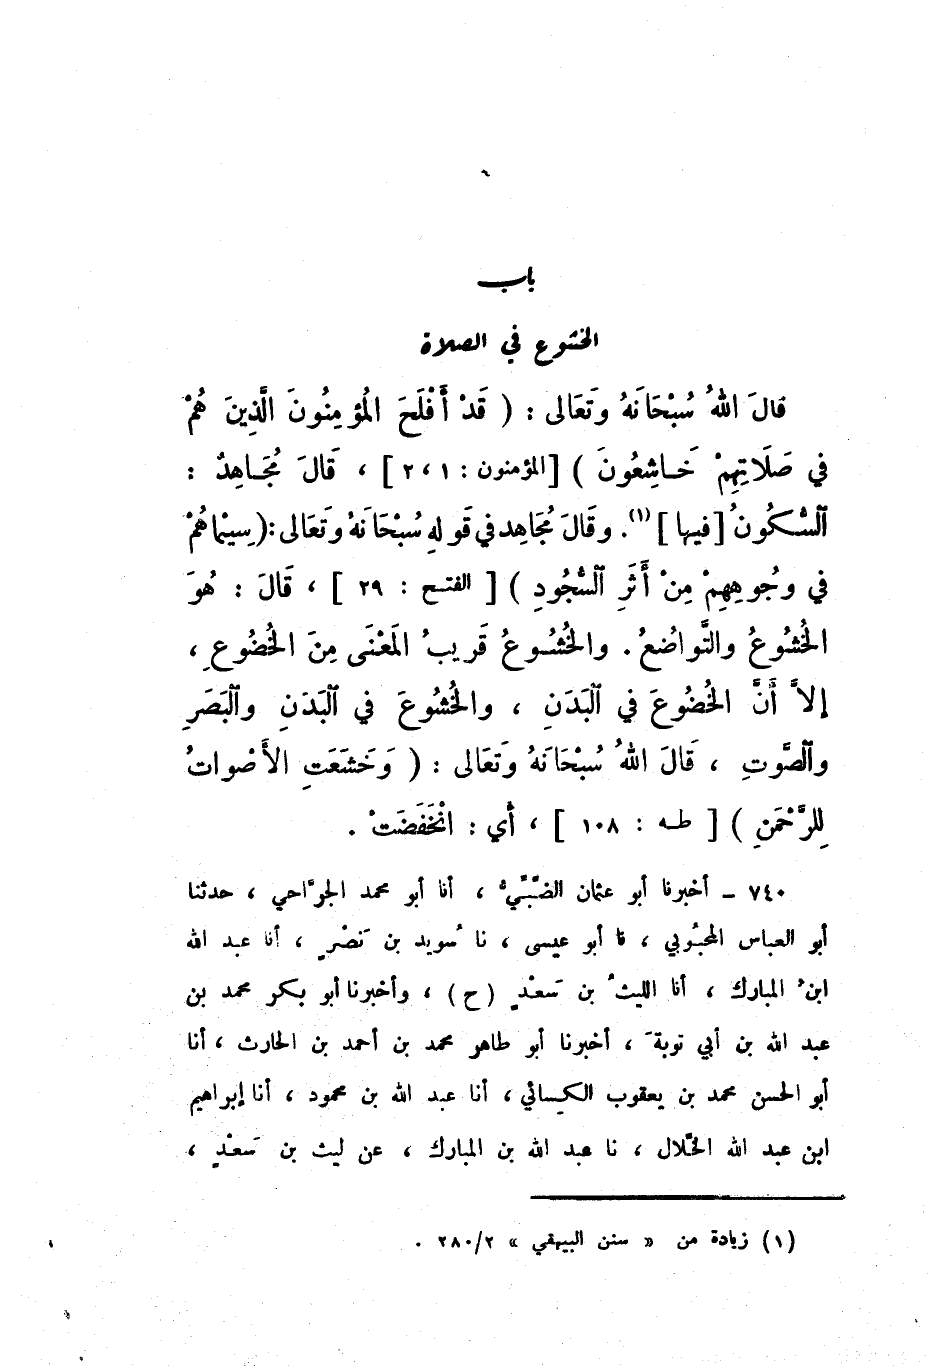 باب
الخشوع في الصلاة
قالَ اللهُ سُبْحَانَهُ وتَعَالى : ( قَدْ أَفْلَحَ المُؤمِنُونَ الَّذِينَ هُمْ
في صَلَاتِهِمْ خَاشِعُونَ ) [ المؤمنون : ١ ، ٢ ] ، قَالَ مُجَاهِدٌ :
السُّكُونُ [ فيها ] (١) . وقَالَ مُجَاهِد في قَولِهِ سُبْحَانَهُ وتَعَالى : ( سِيْمَاهُمْ
في وجُوهِهِمْ مِنْ أَثَرِ السُّجُودِ ) [ الفتح : ٢٩ ] ، قَالَ : هُوَ
الخُشُوعُ والتَّواضُعُ . والخُشُوعُ قَريبُ المَعْنَى مِنَ الخُضُوعِ ،
إلاَّ أَنَّ الخُضُوعَ في البَدَنِ ، والخُشُوعَ في البَدَنِ والبَصَرِ
والصَّوتِ ، قَالَ اللهُ سُبْحَانَهُ وتَعَالى : ( وَخَشَعَتِ الأَصْواتُ
لِلرَّحْمَنِ ) [ طه : ١٠٨ ] ، أَي : انْخَفَضَتْ .
٧٤٠ – أخبرنا أبو عثمان الضَّبِّيُّ ، أنا أبو محمد الجرَّاحي ، حدثنا
أبو العباس المحبُوبي ، نا أبو عيسى ، نا سُويد بن نَصْرٍ ، أنا عبد الله
ابنُ المبارك ، أنا الليثُ بن سَعْدٍ ( ح ) ، وأخبرنا أبو بكر محمد بن
عبد الله بن أبي توبةَ ، أخبرنا أبو طاهر محمد بن أحمد بن الحارث ، أنا
أبو الحسن محمد بن يعقوب الكسائي ، أنا عبد الله بن محمود ، أنا إبراهيم
ابن عبد الله الخلَّال ، نا عبد الله بن المبارك ، عن ليث بن سَعْدٍ ،
(١) زيادة من « سنن البيهقي » ٢٨٠/٢ .